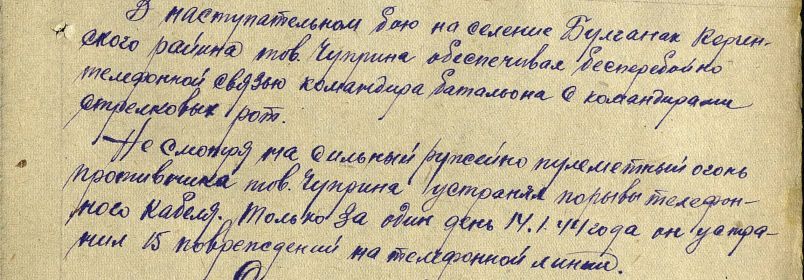 В наступательном бою на селение Булганак Керчен-
ского района тов. Чуприна обеспечивал бесперебойно
телефонной связью командира батальона с командирами
стрелковых рот.
Не смотря на сильный ружейно пулеметный огонь
противника тов. Чуприна устранял порывы телефон-
ного кабеля. Только за один день 14.1.44 года он устра-
нил 15 повреждений на телефонной линии.